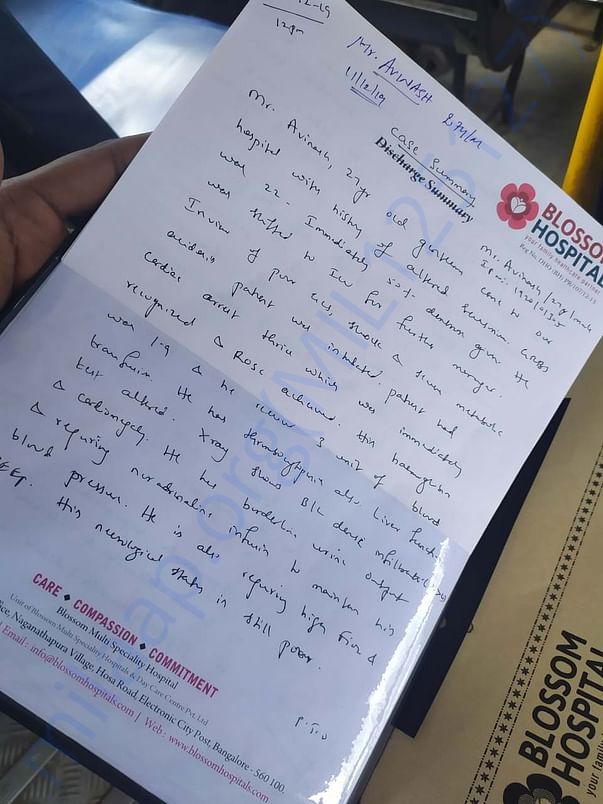 2-19
12pm
Mr. AVINASH 27y/M
11/12/19
BLOSSOM
HOSPITAL
your family healthcare partner
Case Summary
Discharge Summary
Mr. Avinash, 27y/male
Mr. Avinash, 27yr old gentleman came to our
hospital with history of altered sensorium. GRBS
was 22. Immediately 50% dextrose given. He
was shifted to ICU for further
In view of poor GCS, shock & severe metabolic
acidosis patient was intubated. patient had
cardiac arrest thrice which was immediately
recognized & ROSC achieved. His haemoglobin
was 1.9 & he 3 unit of blood
transfusion. He has also. Liver function
test altered. Xray shows B/L dense
& cardiomegaly. He has borderline urine output
& requiring noradrenaline infusion to maintain his
blood pressure. He is also requiring high FiO2 &
PEEP. His neurological status is still poor.
P.T.O
CARE ◆ COMPASSION ◆ COMMITMENT
Blossom Multi Speciality Hospital
Unit of Blossom Multi Speciality Hospitals & Day Care Centre Pvt. Ltd
ice, Naganathapura Village, Hosa Road, Electronic City Post, Bangalore - 560 100.
Email : info@blossomhospitals.com | Web : www.blossomhospitals.com
BLOSSOM
HOSPITAL
your family